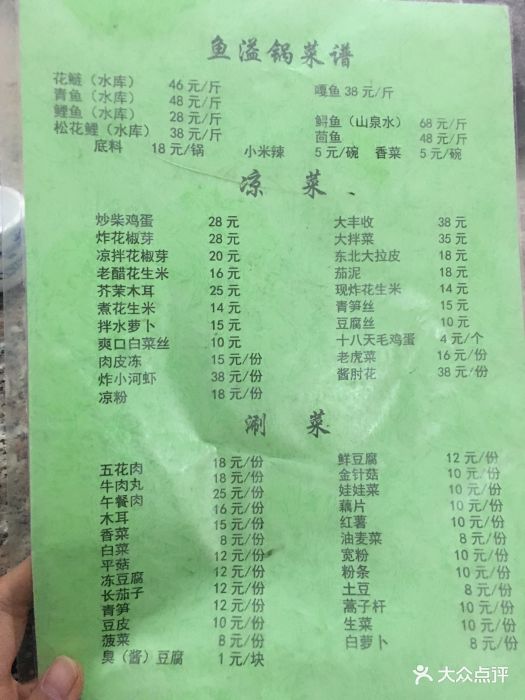 鱼溢锅菜谱
花鲢（水库） 46 元/斤
青鱼（水库） 48 元/斤
鲤鱼（水库） 28 元/斤
松花鲤（水库） 38 元/斤
嘎鱼 38 元/斤
鲟鱼（山泉水） 68 元/斤
茴鱼 48 元/斤
底料 18 元/锅 小米辣 5 元/碗 香菜 5 元/碗
凉 菜
炒柴鸡蛋 28 元
炸花椒芽 28 元
凉拌花椒芽 20 元
老醋花生米 16 元
芥茉木耳 25 元
煮花生米 14 元
拌水萝卜 15 元
爽口白菜丝 10 元
肉皮冻 15 元/份
炸小河虾 38 元/份
凉粉 18 元/份
大丰收 38 元
大拌菜 35 元
东北大拉皮 18 元
茄泥 18 元
现炸花生米 14 元
青笋丝 15 元
豆腐丝 10 元
十八天毛鸡蛋 4 元/个
老虎菜 16 元/份
酱肘花 38 元/份
涮 菜
五花肉 18 元/份
牛肉丸 18 元/份
午餐肉 25 元/份
木耳 16 元/份
香菜 15 元/份
白菜 8 元/份
平菇 12 元/份
冻豆腐 12 元/份
长茄子 12 元/份
青笋 12 元/份
豆皮 10 元/份
菠菜 8 元/份
臭（酱）豆腐 1 元/块
鲜豆腐 12 元/份
金针菇 10 元/份
娃娃菜 10 元/份
藕片 10 元/份
红薯 10 元/份
油麦菜 8 元/份
宽粉 10 元/份
粉条 10 元/份
土豆 8 元/份
蒿子杆 10 元/份
生菜 10 元/份
白萝卜 8 元/份
大众点评